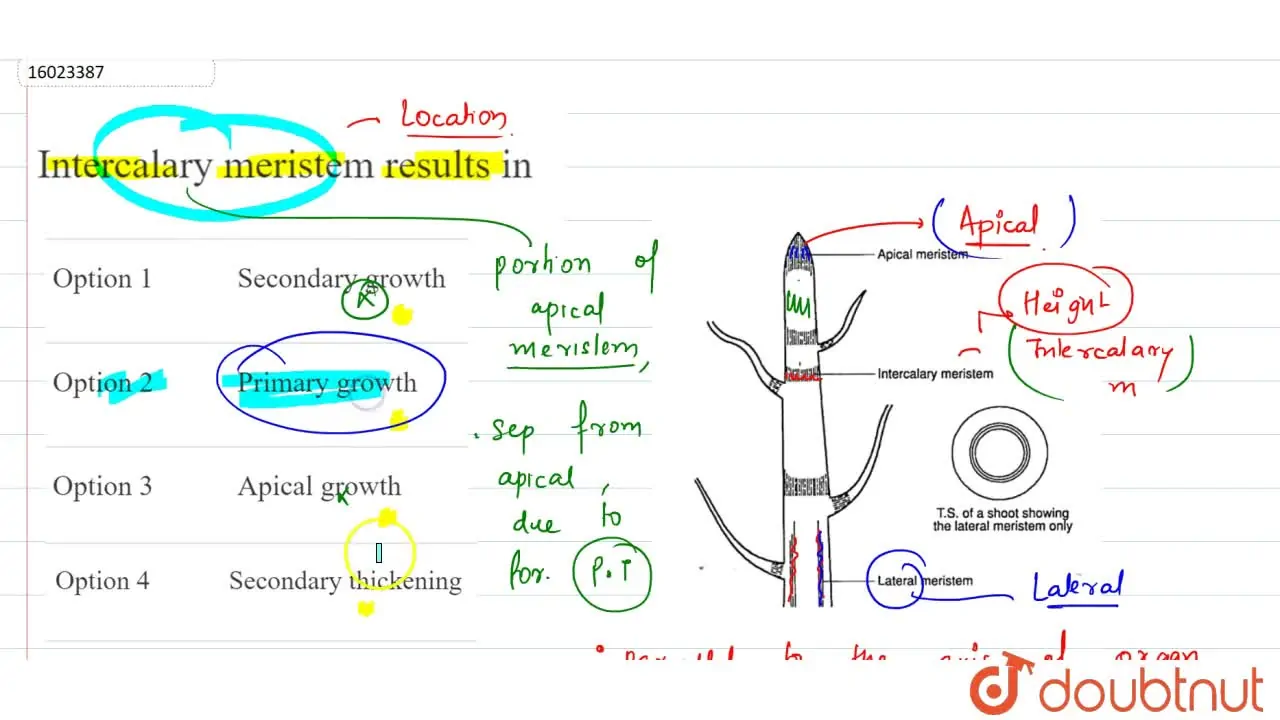 16023387
Location
Intercalary meristem results in
Option 1 Secondary growth
Option 2 Primary growth
Option 3 Apical growth
Option 4 Secondary thickening
portion of
apical
meristem,
. sep from
apical,
due to
for. P.T
(Apical)
Apical meristem
Height
(Intercalary
m)
Intercalary meristem
T.S. of a shoot showing
the lateral meristem only
Lateral meristem
Lateral
to the axis of organ
doubtnut